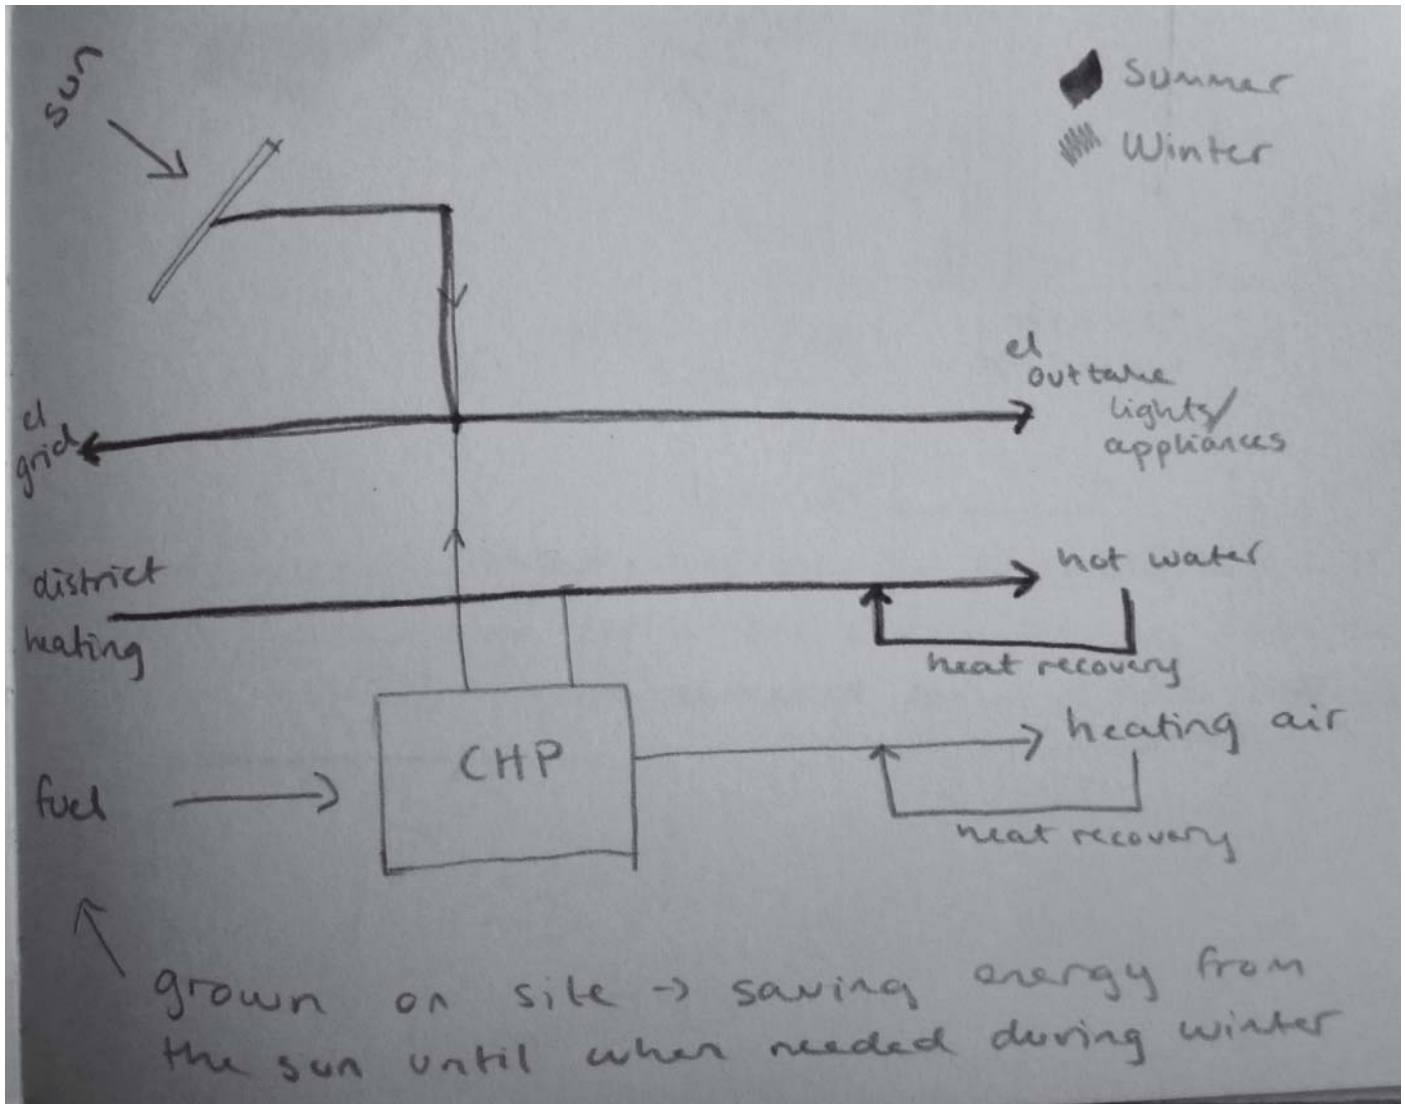 sun
Summer
Winter
el
out take
lights/
appliances
el
grid
district
heating
hot water
heat recovery
CHP
heating air
heat recovery
fuel
grown on site → saving energy from
the sun until when needed during winter